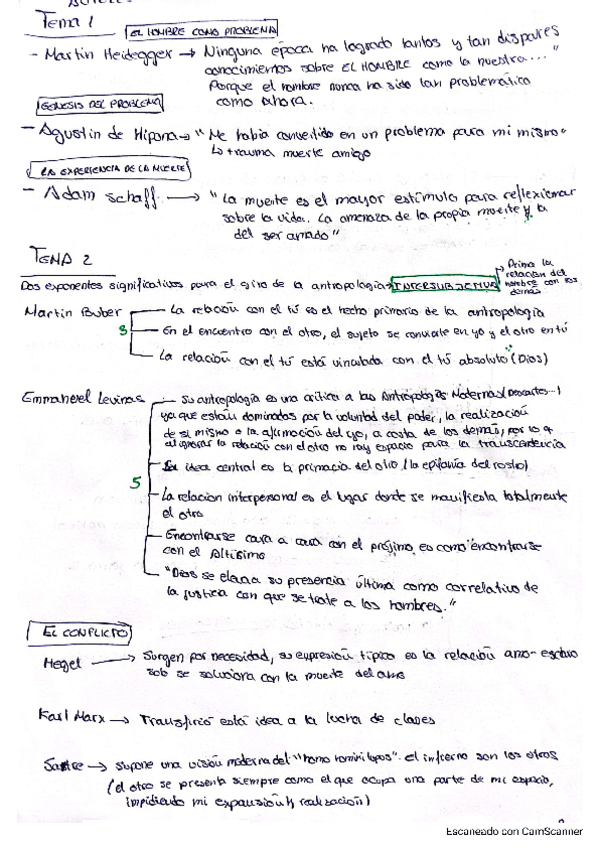 Tema 1
EL HOMBRE COMO PROBLEMA
- Martin Heidegger → Ninguna época ha logrado tantos y tan dispares
conocimientos sobre EL HOMBRE como la nuestra..."
Porque el hombre nunca ha sido tan problemático
como ahora.
GENESIS DEL PROBLEMA
- Agustin de Hipona → "Me había convertido en un problema para mi mismo"
↳ trauma muerte amigo
LA EXPERIENCIA DE LA MUERTE
- Adam Schaff → "La muerte es el mayor estímulo para reflexionar
sobre la vida. La amenaza de la propia muerte y la
del ser amado"
TEMA 2
Prima la
relación del
hombre con los
demás
Dos exponentes significativos para el giro de la antropología → INTERSUBJETIVA
Martin Buber
3
- La relación con el tú es el hecho primario de la antropología
- En el encuentro con el otro, el sujeto se convierte en yo y el otro en tú
- La relación con el tú está vinculada con el tú absoluto (Dios)
Emmanuel Levinas
5
- Su antropología es una crítica a las Antropologías Modernas (Descartes...)
ya que están dominadas por la voluntad del poder, la realización
de si mismo o la afirmación del yo, a costa de los demás, por lo q
al ignorar la relación con el otro no hay espacio para la transcendencia
- Su idea central es la primacia del otro (la epifanía del rostro)
- La relacion interpersonal es el lugar donde se manifiesta totalmente
el otro
- Encontrarse cara a cara con el prójimo es como encontrarse
con el Altísimo
- "Dios se eleva su presencia última como correlativo de
la justicia con que se trate a los hombres."
EL CONFLICTO
Hegel → Surgen por necesidad, su expresión típica es la relación amo-esclavo
solo se soluciona con la muerte del amo
Karl Marx → Transfirió está idea a la lucha de clases
Sartre → supone una visión moderna del "homo homini lupus". el infierno son los otros
(el otro se presenta siempre como el que ocupa una parte de mi espacio,
impidiendo mi expansión y realización)
Escaneado con CamScanner